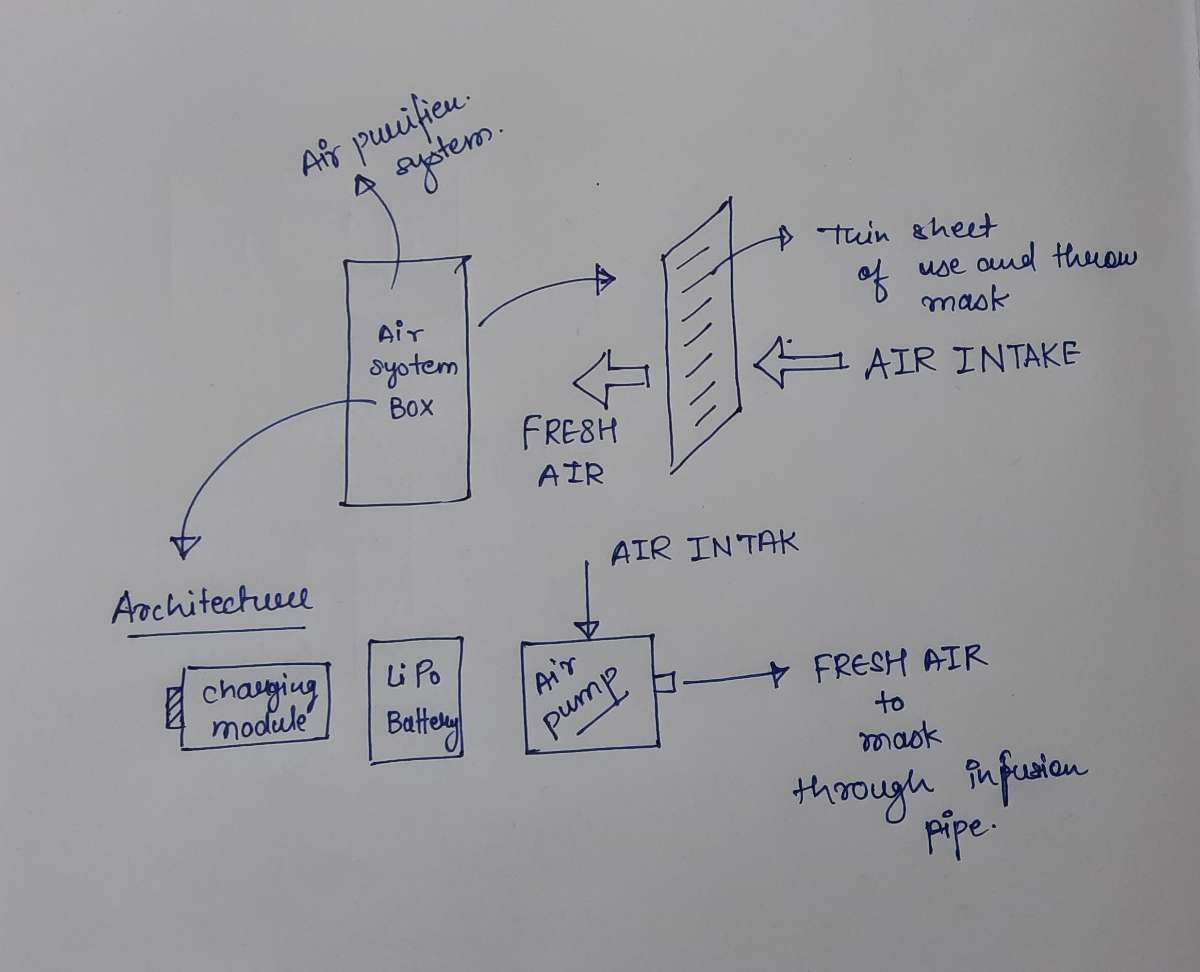 Air purifier
system.
Air
system
BOX
Thin sheet
of use and throw
mask
AIR INTAKE
FRESH
AIR
AIR INTAK
Architecture
charging
module
LiPo
Battery
Air
pump
FRESH AIR
to
mask
through infusion
pipe.